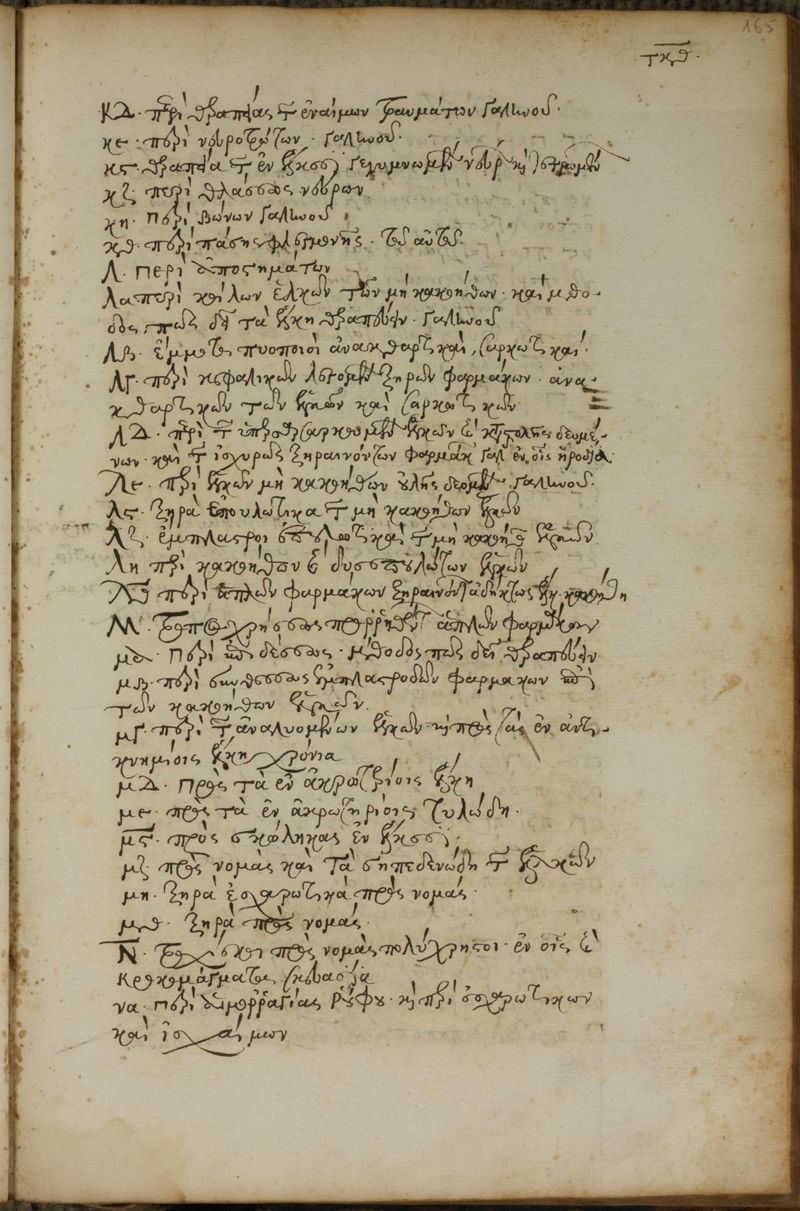 165
τκθ
ΚΔ · περὶ θεραπείας τῶν ἐναίμων τραυμάτων Γαληνοῦ ·
κε · περὶ νευροτρώτων · Γαληνοῦ ·
κς · θεραπεία τῶν ἐν ἕλκεσι γεγυμνωμένων νεύρων καὶ
κζ περὶ θλάσεως νεύρων
κη · περὶ βουβώνων Γαληνοῦ ·
κθ · περὶ πάσης φλεγμονῆς · τοῦ αὐτοῦ ·
Λ · περὶ ἀποστημάτων
λα περὶ κοίλων ἑλκῶν τῶν μὴ κακοήθων · καὶ μέθο-
δος, πῶς δεῖ τὰ ἕλκη θεραπεύειν · Γαληνοῦ
λβ · ἔμμοτοι πυοποιοὶ ἀνακαθαρτικαὶ, σαρκωτικαί ·
λγ · περὶ κεφαλικῶν λεγομένων ξηρῶν φαρμάκων · ἀνα-
καθαρτικῶν τῶν ἑλκῶν καὶ σαρκωτικῶν
λΔ · περὶ τῶν ὑπερσαρκουμένων ἑλκῶν καὶ δεομέ-
νων · καὶ τῶν ἰσχυρῶς ξηραινόντων φαρμάκων Γαλ ἐν οἷς
λε · περὶ ἑλκῶν μὴ κακοήθων οὐλῆς δεομένων Γαληνοῦ ·
λς · ξηρὰ ἐπουλωτικὰ τῶν μὴ κακοήθων ἑλκῶν
λζ · ἔμπλαστροι ἐπουλωτικαὶ τῶν μὴ κακοήθων ἑλκῶν
λη περὶ κακοήθων καὶ δυσεπουλώτων ἑλκῶν
λθ περὶ ἁπλῶν φαρμάκων ξηραινόντων ἀδήκτως ἕλκη κακοήθη
Μ · τρόπος χρήσεως προρρηθέντων ἁπλῶν φαρμάκων
μα · περὶ ἐπιδέσεως · μέθοδος πῶς δεῖ θεραπεύειν
μβ · περὶ συνθέσεως ἐμπλαστρωδῶν φαρμάκων ἐπὶ
τῶν κακοήθων ἑλκῶν ·
μγ · περὶ τῶν ἀναλυομένων ἑλκῶν · καὶ πρὸς τὰ ἐν ἀντι-
κνημίοις ἕλκη χρόνια
μΔ · πρὸς τὰ ἐν ἀκρωτηρίοις ἕλκη
με · πρὸς τὰ ἐν ἀκρωτηρίοις τυλώδη ·
μς · πρὸς σκώληκας ἐν ἕλκεσι
μζ πρὸς νομὰς καὶ τὰ σηπεδονώδη τῶν ἑλκῶν
μη · ξηρὰ ἐσχαρωτικὰ πρὸς νομάς ·
μθ · ξηρὰ πρὸς νομάς ·
Ν · τροχίσκοι πρὸς νομὰς πολύχρηστοι · ἐν οἷς καὶ
κροκομάγματος σκευασία
να · περὶ αἱμορραγίας Ρούφου · καὶ περὶ ἐσχαρωτικῶν
καὶ ἰσχαίμων